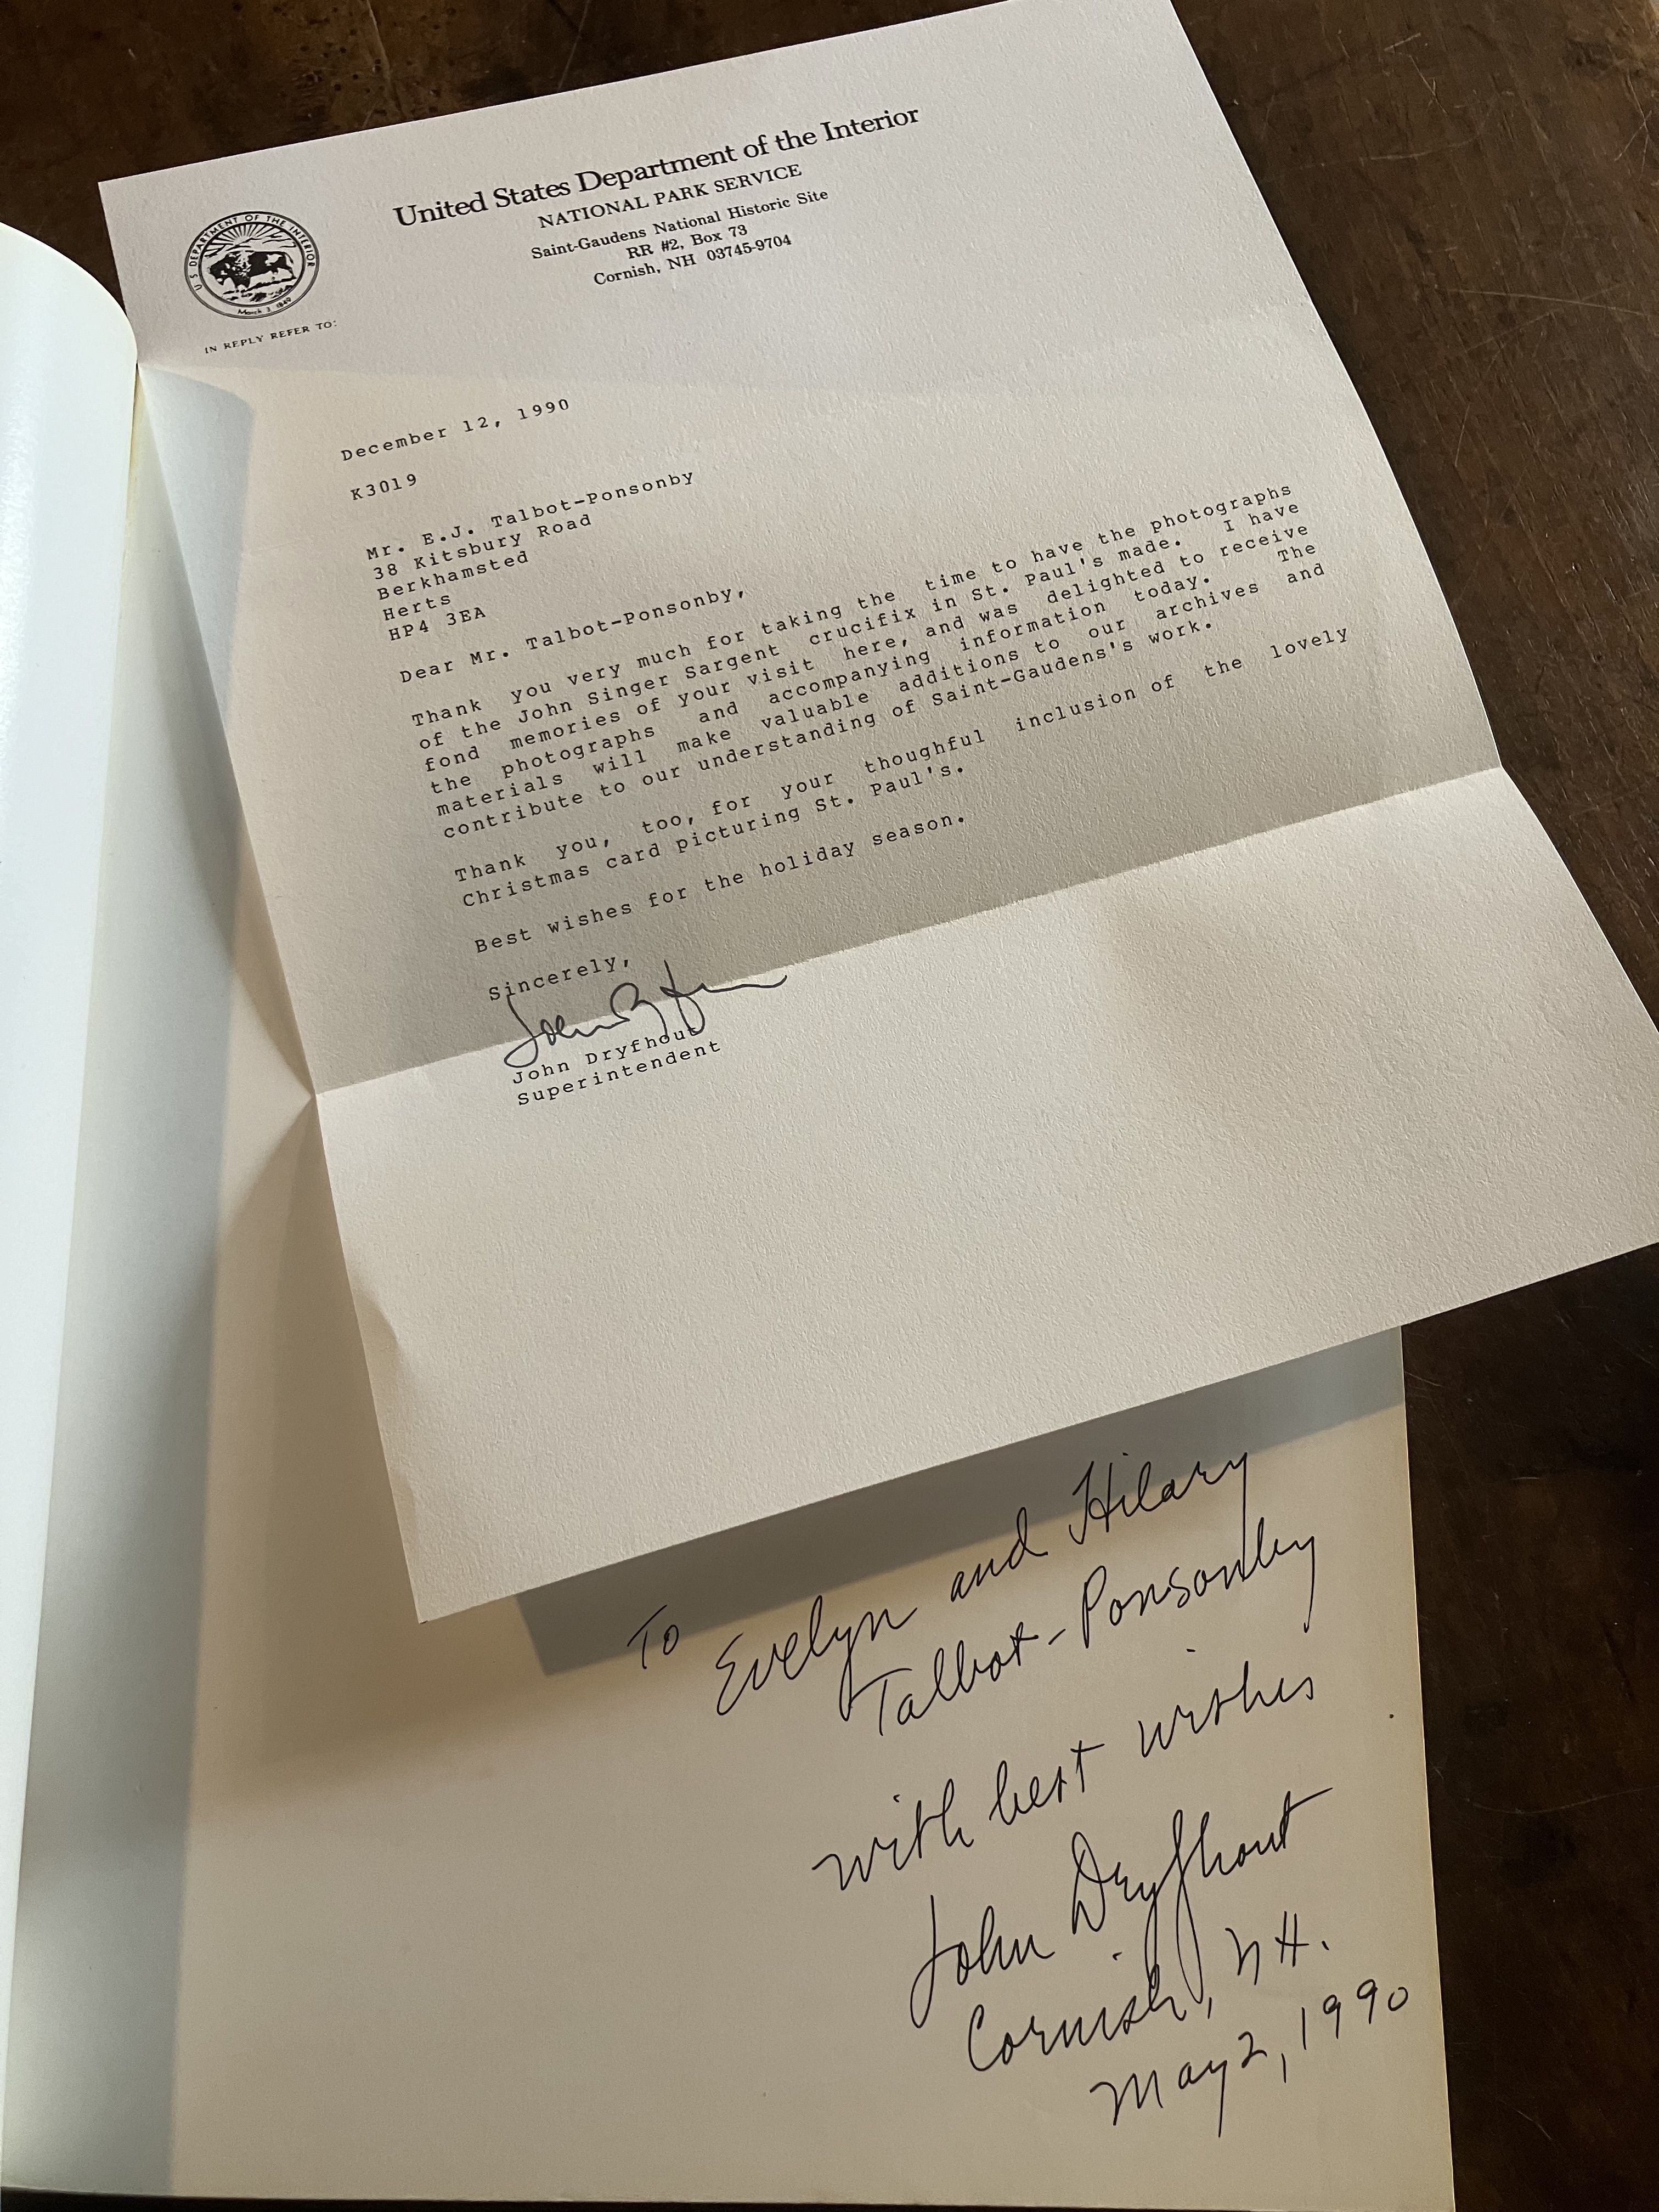 United States Department of the Interior
NATIONAL PARK SERVICE
Saint-Gaudens National Historic Site
RR #2, Box 73
Cornish, NH 03745-9704
U.S. DEPARTMENT OF THE INTERIOR
March 3, 1849
IN REPLY REFER TO:
December 12, 1990
K3019
Mr. E.J. Talbot-Ponsonby
38 Kitsbury Road
Berkhamsted
Herts
HP4 3EA
Dear Mr. Talbot-Ponsonby,
Thank you very much for taking the time to have the photographs
of the John Singer Sargent crucifix in St. Paul's made. I have
fond memories of your visit here, and was delighted to receive
the photographs and accompanying information today. The
materials will make valuable additions to our archives and
contribute to our understanding of Saint-Gaudens's work.
Thank you, too, for your thoughful inclusion of the lovely
Christmas card picturing St. Paul's.
Best wishes for the holiday season.
Sincerely,
John Dryfhout
Superintendent
To Evelyn and Hilary
Talbot-Ponsonby
with best wishes
John Dryfhout
Cornish, NH.
May 2, 1990